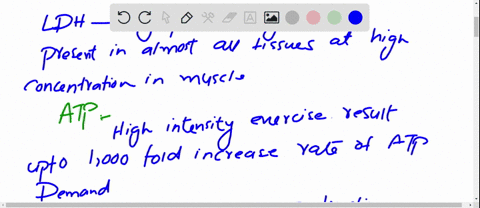 LDH —
present in almost all tissues at high
concentration in muscle
ATP -
High intensity exercise result
upto 1,000 fold increase rate of ATP
Demand